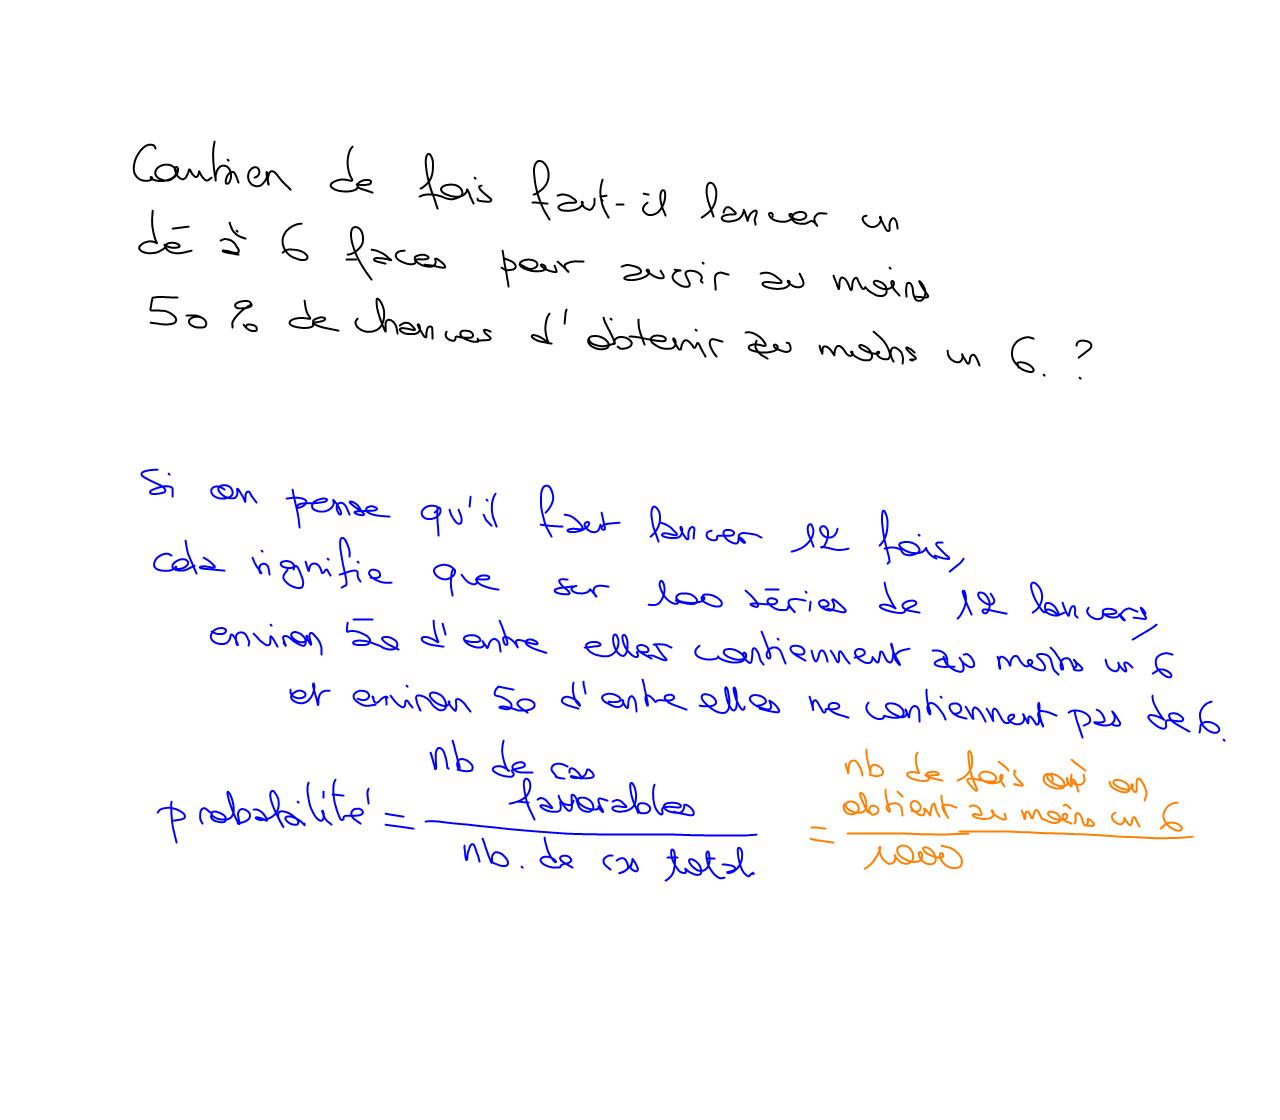 Combien de fois faut-il lancer un
dé à 6 faces pour avoir au moins
50 % de chances d'obtenir au moins un 6. ?
Si on pense qu'il faut lancer 12 fois,
cela signifie que sur 100 séries de 12 lancers,
environ 50 d'entre elles contiennent au moins un 6
et environ 50 d'entre elles ne contiennent pas de 6.
probabilité = nb de cas favorables / nb. de cas total = nb de fois où on obtient au moins un 6 / 1000